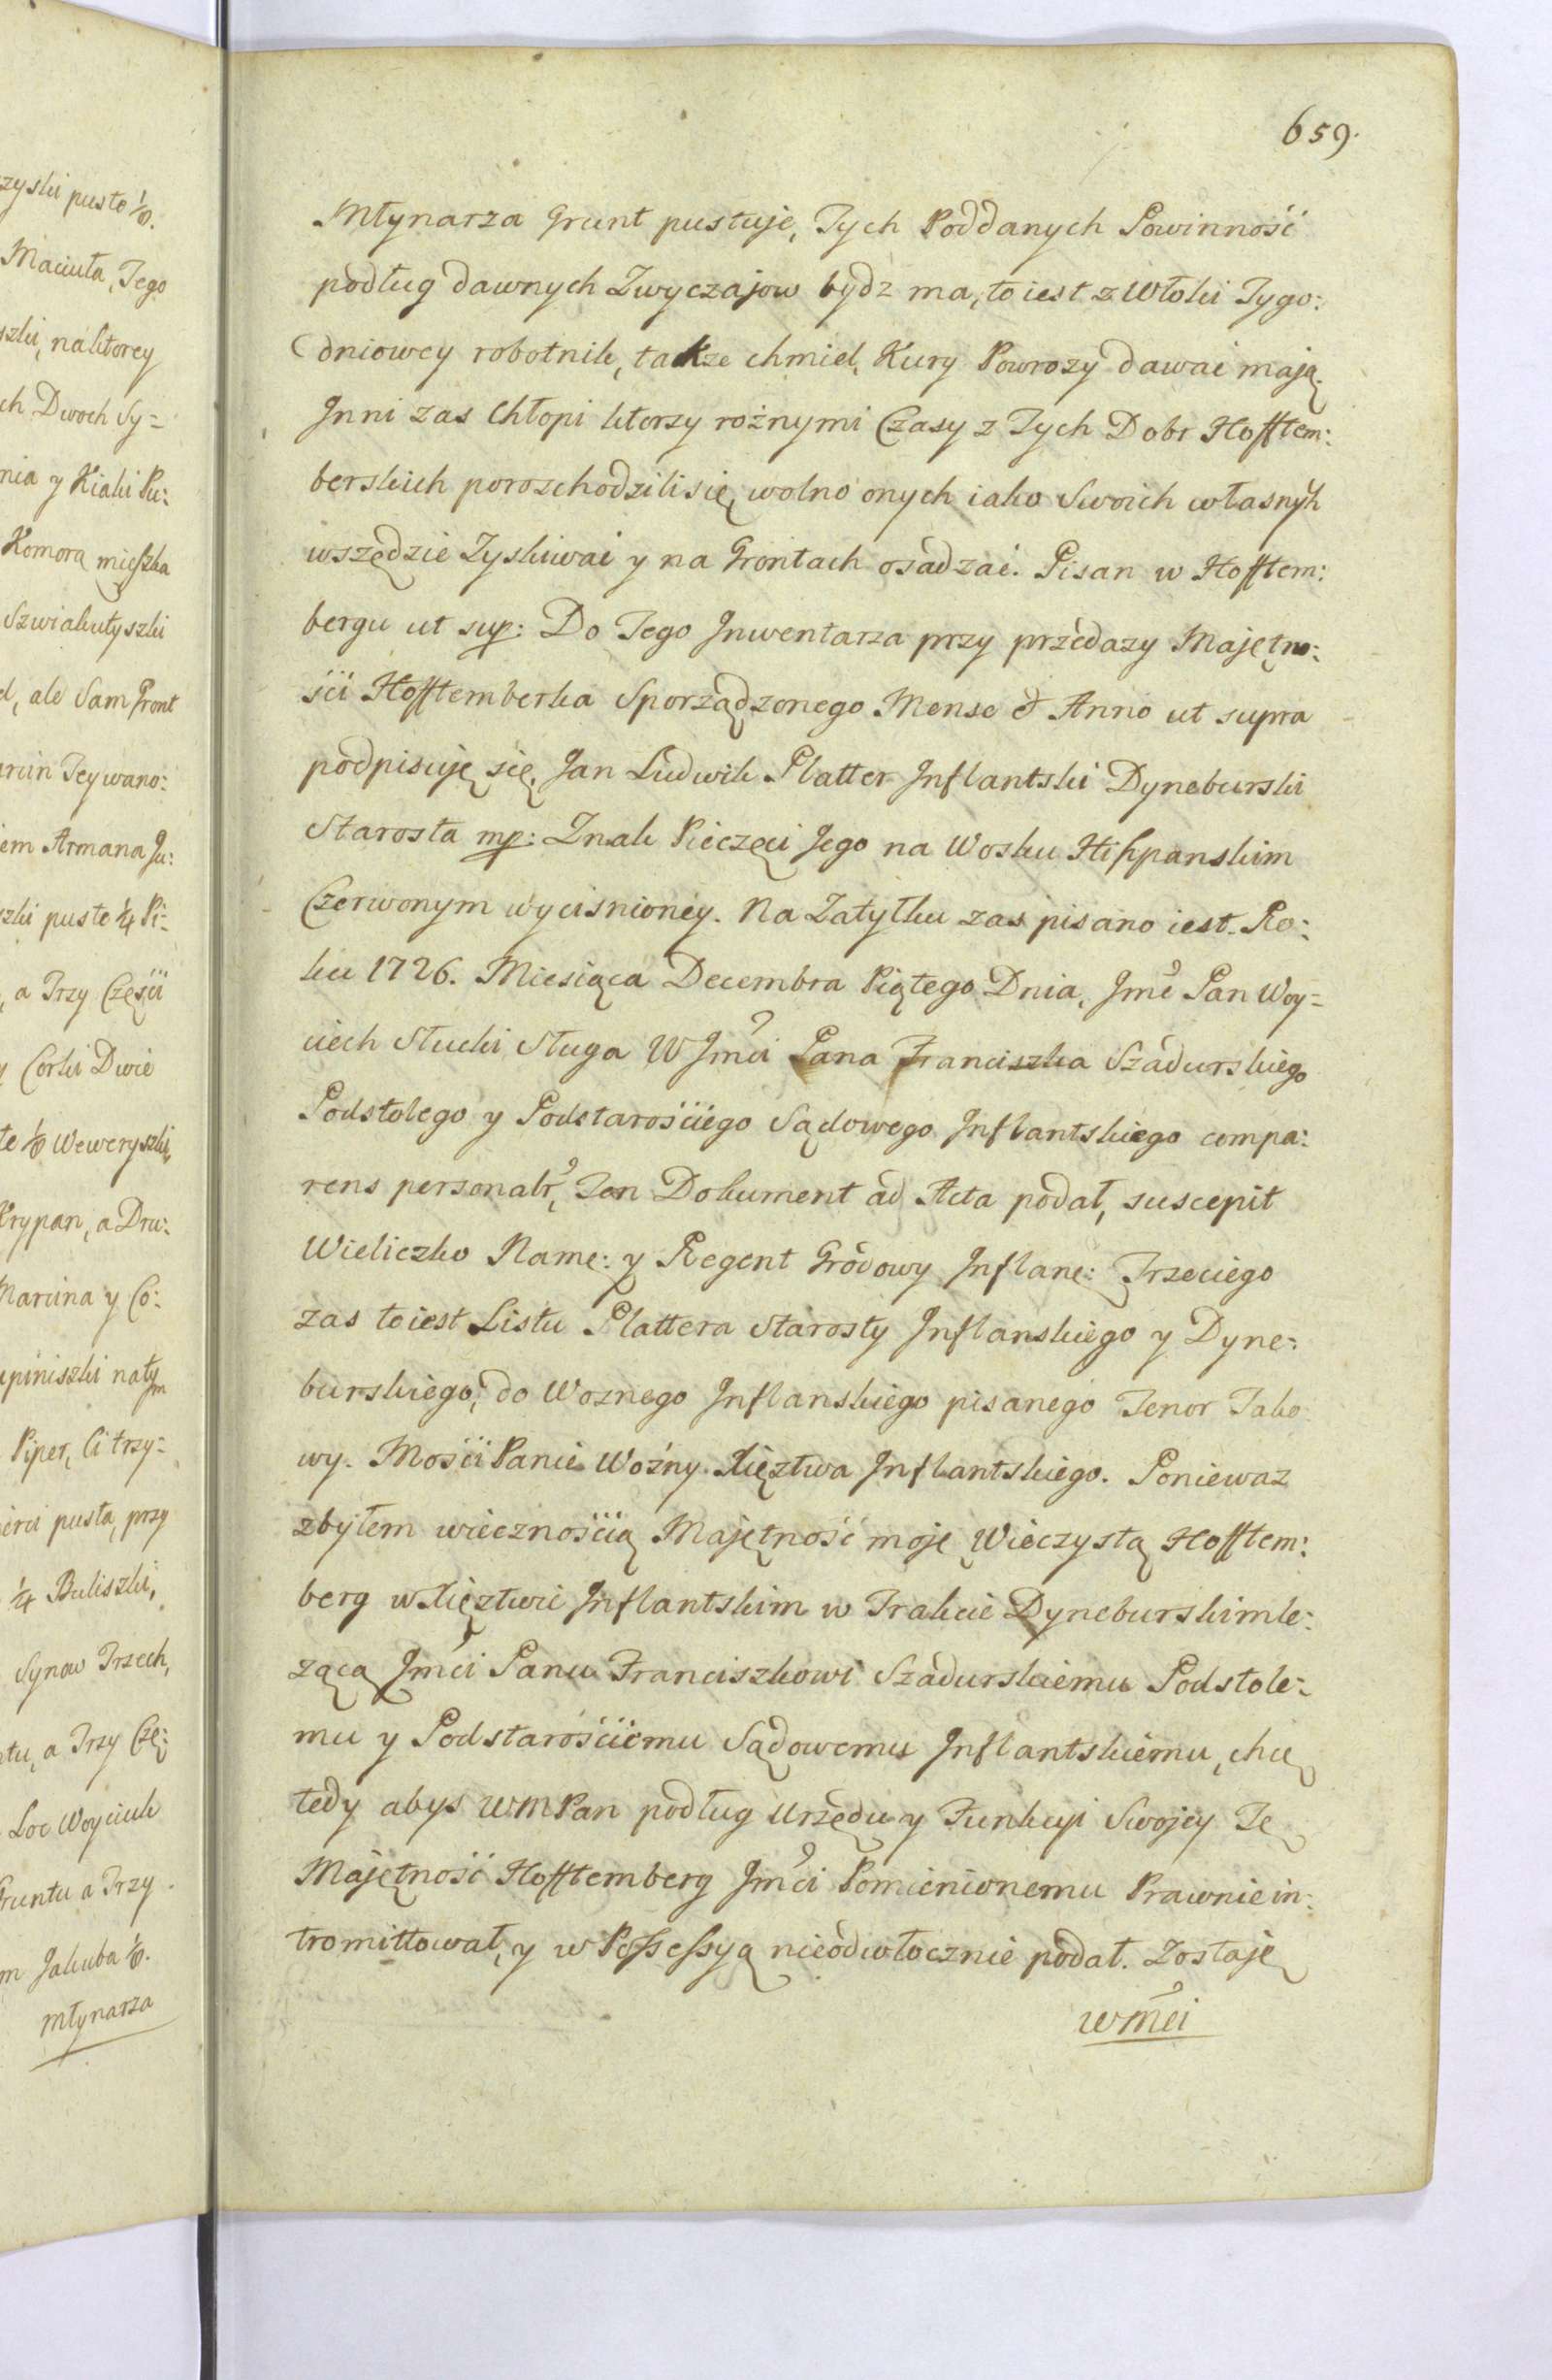 659.
Młynarza Grunt pustuje, Tych Poddanych Powinność
podług dawnych Zwyczajow bydz ma, to iest z Włoki Tygo:
dniowey robotnik, takze chmiel, Kury Powrozy dawać mają.
Inni zas Chłopi ktorzy rożnymi Czasy z Tych Dobr Hofftem:
berskich porozchodzili się, wolno onych iako Swoich własnych
wszędzie Zyskiwać y na Grontach osadzać. Pisan w Hofftem:
bergu ut sup: Do Tego Inwentarza przy przedazy Majętno:
ści Hofftemberka Sporządzonego Mense & Anno ut supra
podpisuję się, Jan Ludwik Platter Inflantski Dyneburski
Starosta mp: Znak Pieczęci Jego na Wosku Hiszpanskim
Czerwonym wycisnioney. Na Zatyłku zas pisano iest. Ro:
ku 1726. Miesiąca Decembra Piątego Dnia, Jmć Pan Woy=
ciech Słucki Sługa W Jmći Pana Franciszka Szadurskiego
Podstolego y Podstarościego Sądowego Inflantskiego compa:
rens personalr, Ten Dokument ad Acta podał, suscepit
Wieliczko Name: y Regent Grodowy Inflanc: Trzeciego
zas to iest Listu Plattera Starosty Inflanskiego y Dyne:
burskiego, do Woznego Inflanskiego pisanego Tenor Tako
wy. Mości Panie Woźny Xięztwa Inflantskiego. Poniewaz
zbyłem wiecznością Majętność moję Wieczystą Hofftem:
berg w Xięztwie Inflantskim w Trakcie Dyneburskim le:
zącą Jmći Panu Franciszkowi Szadurskiemu Podstole:
mu y Podstarościemu Sądowemu Inflantskiemu, chcę
tedy abys WMPan podług Urzędu y Funkcyi Swojey Tę
Majętność Hofftemberg Jmći Pomienionemu Prawnie in:
tromittował, y w Possessyą nieodwłocznie podał. Zostaję
WMći
zyski puste 1/8.
Maciuła, Jego
szki, na ktorey
ch Dwoch Sy=
nia y Kiaki Pu:
Komorą mieszka
Szwiakutyszki
d, ale Sam Gront
arcin Jeywano:
iem Armana Ju:
szki puste 1/4 Pi=
, a Trzy Części
y Corki Dwie
te 1/8 Weweryszki,
Krypan, a Dru:
Marcina y Co:
upiniszki na tym
Piper, Ci trzy=
erci pusta, przy
1/4 Buliszki,
Synow Trzech,
tu, a Trzy Czę:
Loc Woyciuk
Gruntu a Trzy
m Jakuba 1/8.
młynarza